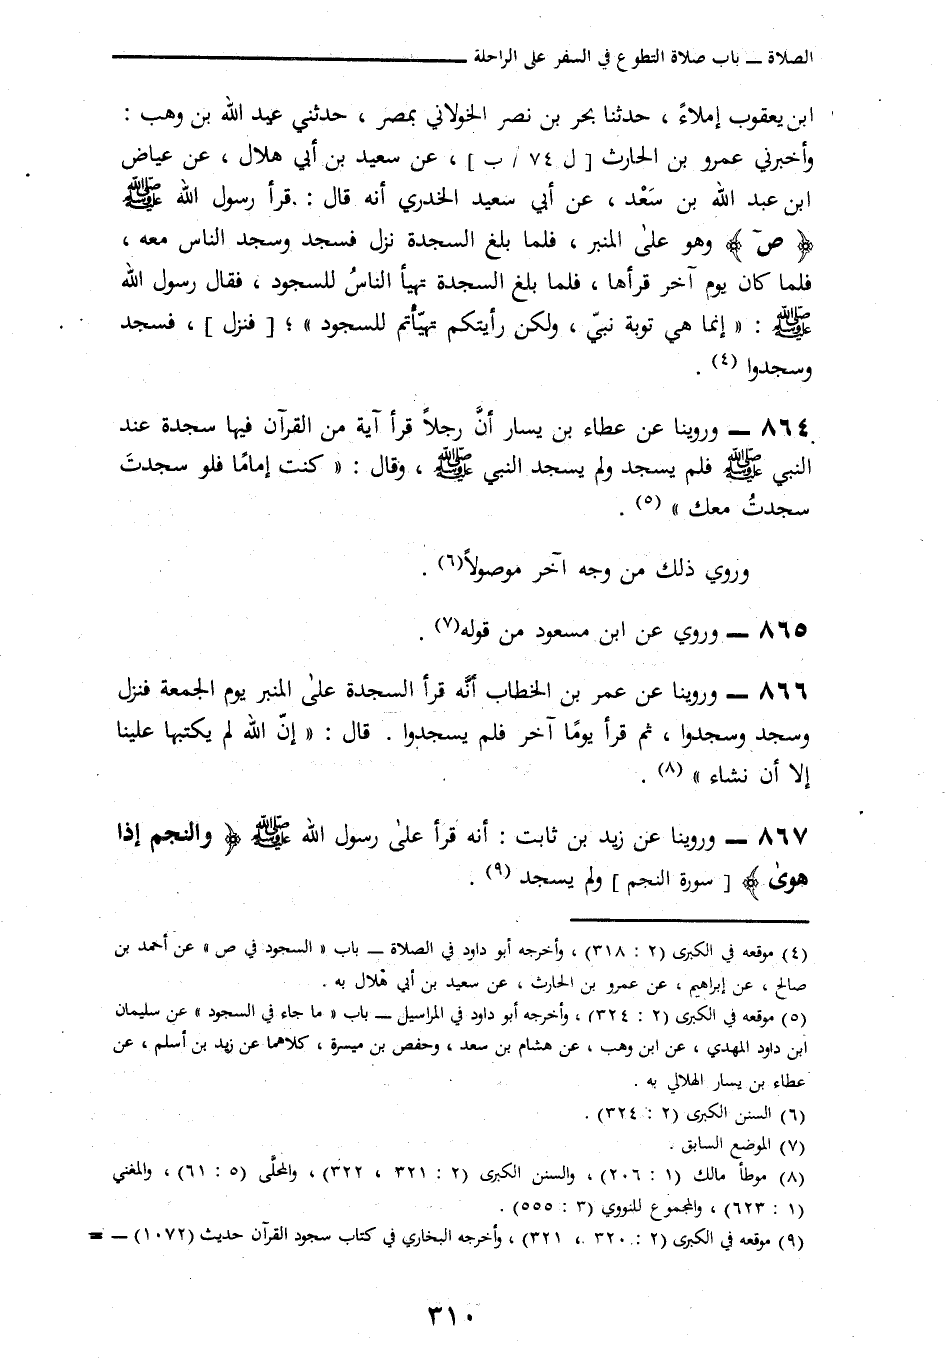 الصلاة ــ باب صلاة التطوع في السفر على الراحلة
ابن يعقوب إملاءً ، حدثنا بحر بن نصر الخولاني بمصر ، حدثني عبد الله بن وهب :
وأخبرني عمرو بن الحارث [ ل ٧٤ / ب ] ، عن سعيد بن أبي هلال ، عن عياض
ابن عبد الله بن سَعْد ، عن أبي سعيد الخدري أنه قال : قرأ رسول الله ﷺ
﴿ صۤ ﴾ وهو علىٰ المنبر ، فلما بلغ السجدة نزل فسجد وسجد الناس معه ،
فلما كان يوم آخر قرأها ، فلما بلغ السجدة تهيأ الناسُ للسجود ، فقال رسول الله
ﷺ : « إنما هي توبة نبيّ ، ولكن رأيتكم تهيّأتم للسجود » ؛ [ فنزل ] ، فسجد
وسجدوا (٤) .
٨٦٤ ــ وروينا عن عطاء بن يسار أنَّ رجلاً قرأ آية من القرآن فيها سجدة عند
النبي ﷺ فلم يسجد ولم يسجد النبي ﷺ ، وقال : « كنت إمامًا فلو سجدتَ
سجدتُ معك » (٥) .
وروي ذلك من وجه آخر موصولاً(٦) .
٨٦٥ ــ وروي عن ابن مسعود من قوله(٧) .
٨٦٦ ــ وروينا عن عمر بن الخطاب أنَّه قرأ السجدة علىٰ المنبر يوم الجمعة فنزل
وسجد وسجدوا ، ثم قرأ يومًا آخر فلم يسجدوا . قال : « إنّ الله لم يكتبها علينا
إلا أن نشاء » (٨) .
٨٦٧ ــ وروينا عن زيد بن ثابت : أنه قرأ علىٰ رسول الله ﷺ ﴿ والنجم إذا
هوىٰ ﴾ [ سورة النجم ] ولم يسجد (٩) .
(٤) موقعه في الكبرى (٢ : ٣١٨) ، وأخرجه أبو داود في الصلاة ــ باب « السجود في ص » عن أحمد بن
صالح ، عن إبراهيم ، عن عمرو بن الحارث ، عن سعيد بن أبي هلال به .
(٥) موقعه في الكبرى (٢ : ٣٢٤) ، وأخرجه أبو داود في المراسيل ــ باب « ما جاء في السجود » عن سليمان
ابن داود المهدي ، عن ابن وهب ، عن هشام بن سعد ، وحفص بن ميسرة ، كلاهما عن زيد بن أسلم ، عن
عطاء بن يسار الهلالي به .
(٦) السنن الكبرى (٢ : ٣٢٤) .
(٧) الموضع السابق .
(٨) موطأ مالك (١ : ٢٠٦) ، والسنن الكبرى (٢ : ٣٢١ ، ٣٢٢) ، والمحلَّى (٥ : ٦١) ، والمغني
(١ : ٦٢٣) ، والمجموع للنووي (٣ : ٥٥٥) .
(٩) موقعه في الكبرى (٢ : ٣٢٠ ، ٣٢١) ، وأخرجه البخاري في كتاب سجود القرآن حديث (١٠٧٢) ــ =
٣١٠